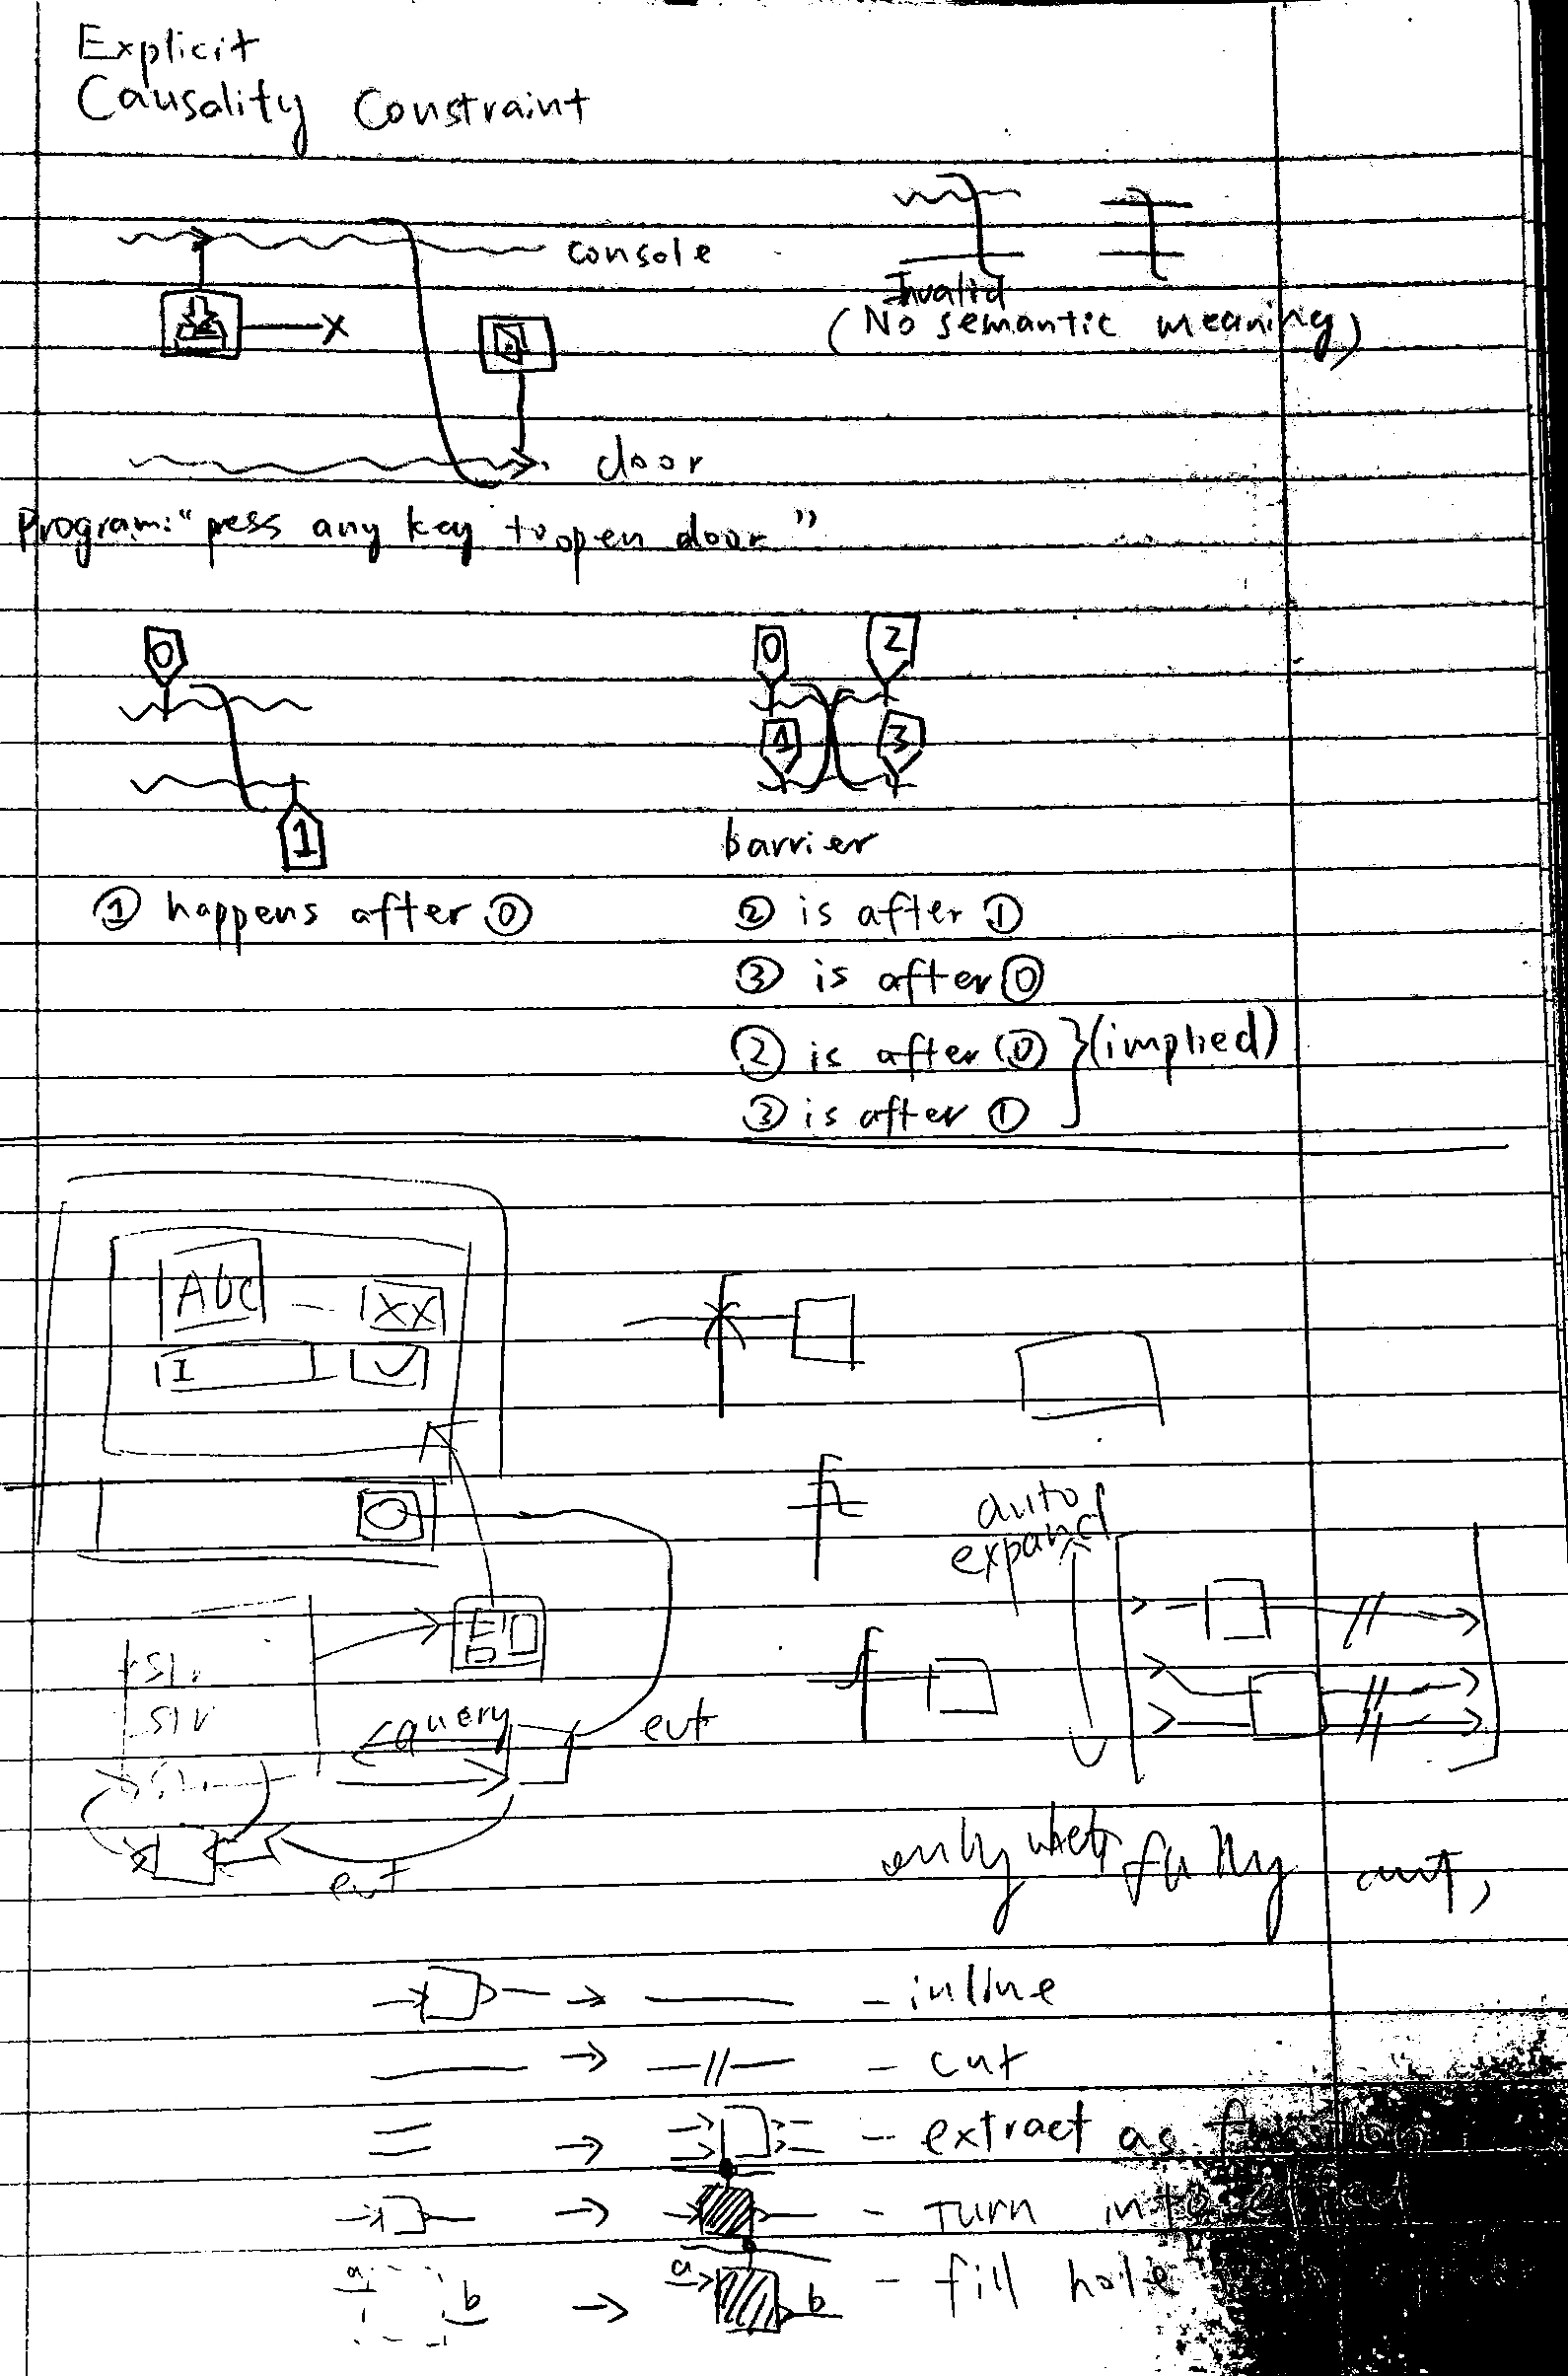 Explicit
Causality Constraint
console
Invalid
(No semantic meaning)
door
Program: "press any key to open door"
0
1
0 2
1 3
barrier
① happens after ⓪
② is after ①
③ is after ⓪
② is after ⓪ } (implied)
③ is after ①
XX
I
auto
expand
str
str
query
evt
evt
only when fully
- inline
- cut
- extract as function
- Turn into
a b
a b - fill hole